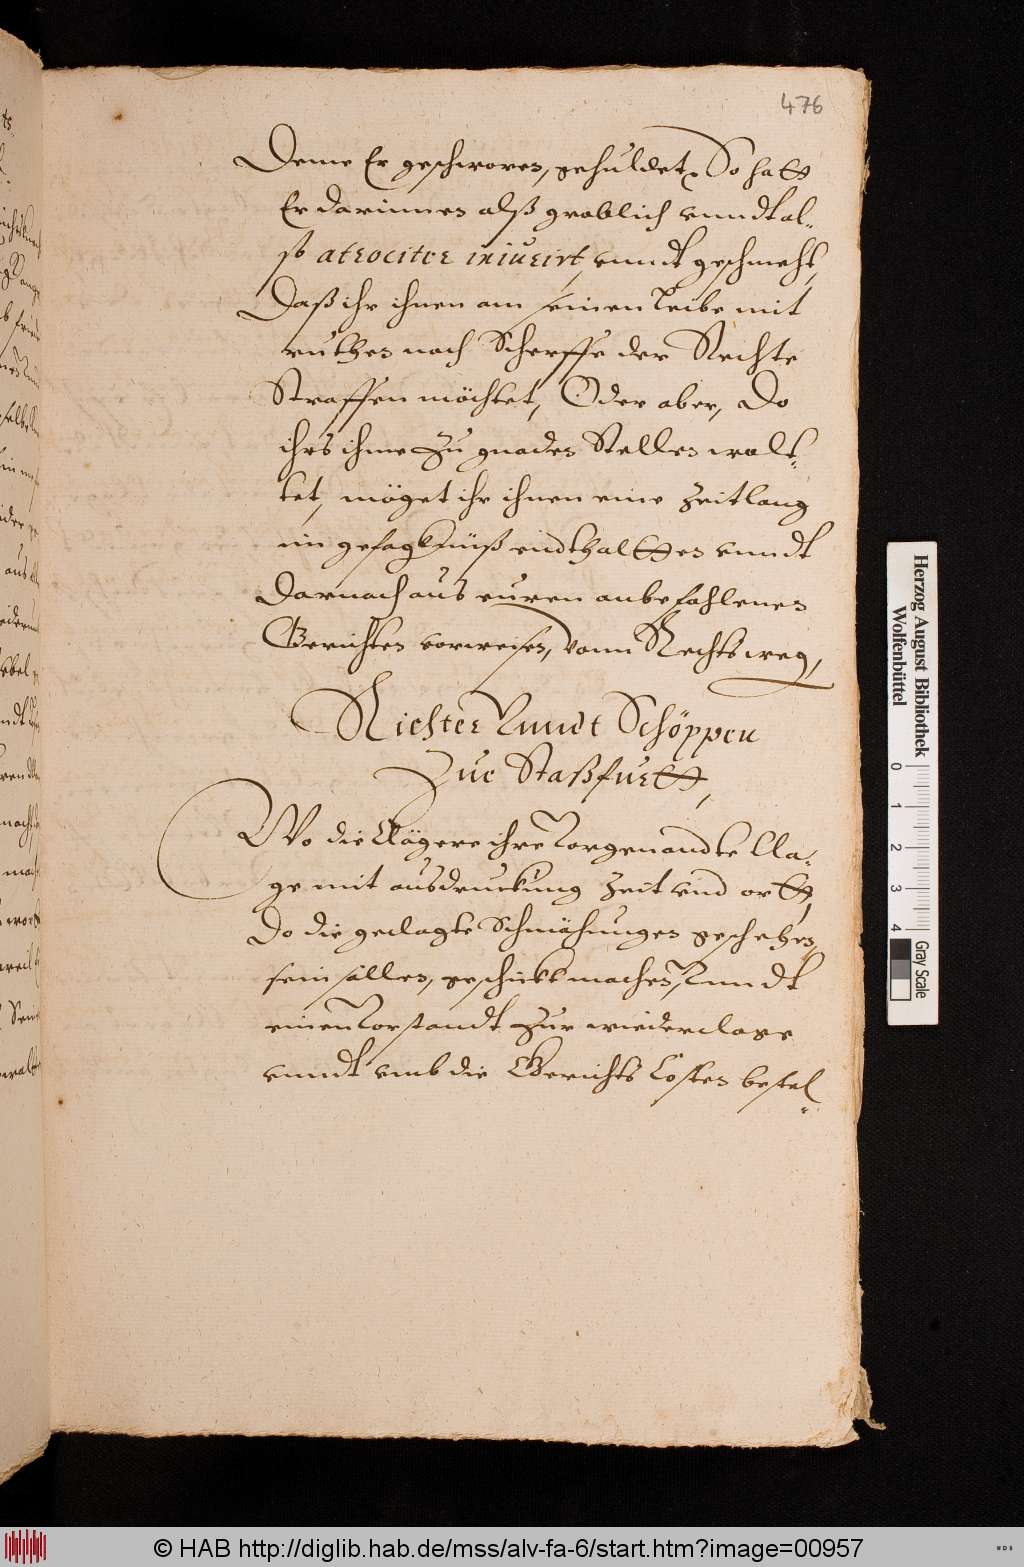 476
Deme Er geschworen, gehuldet, So hatt
Er darinnen alß groblich vnndt al-
ß atrociter iniurirt, vnndt geschmeht,
Daß ihr ihnen am seinen Leibe mit
ruthen nach Scherffe der Rechte
Straffen möchtet, Oder aber, Do
ihrs ihme Zu gnaden Stellen wolt-
tet, möget ihr ihnen eine Zeitlang
im gefagknüß endthaltten vnndt
Darnach aus euren anbefohlenen
Gerichten vorweisen, Vonn Rechts weg,
Richter Vnndt Schöppen
Zue Staßfurtt,
Wo die Clägere ihre Vorgenandte Cla-
ge mit ausdruckung Zeit vnd ortt,
Do die geclagte Schmähungen geschehen,
sein sollen, geschickt machen, Vnndt
einen Vorstandt Zur wiederclage
vnndt vmb die Gerichts Costen bestel-
Herzog August Bibliothek
Wolfenbüttel
0 1 2 3 4
Gray Scale
© HAB http://diglib.hab.de/mss/alv-fa-6/start.htm?image=00957